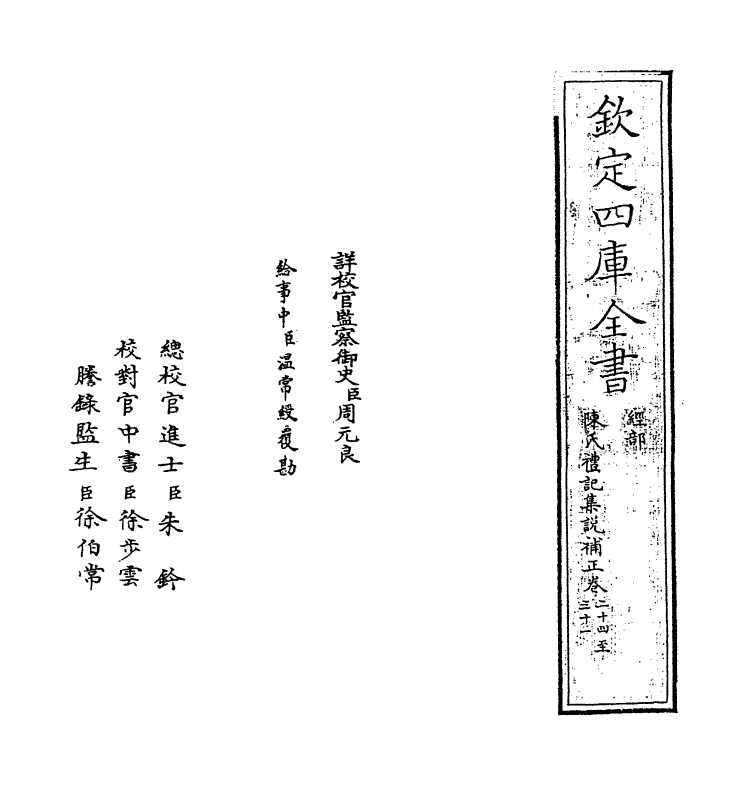 欽定四庫全書
經部
陳氏禮記集説補正卷二十四至三十一
詳校官監察御史臣周元良
給事中臣温常綬覆勘
總校官進士臣朱鈐
校對官中書臣徐步雲
謄錄監生臣徐伯常